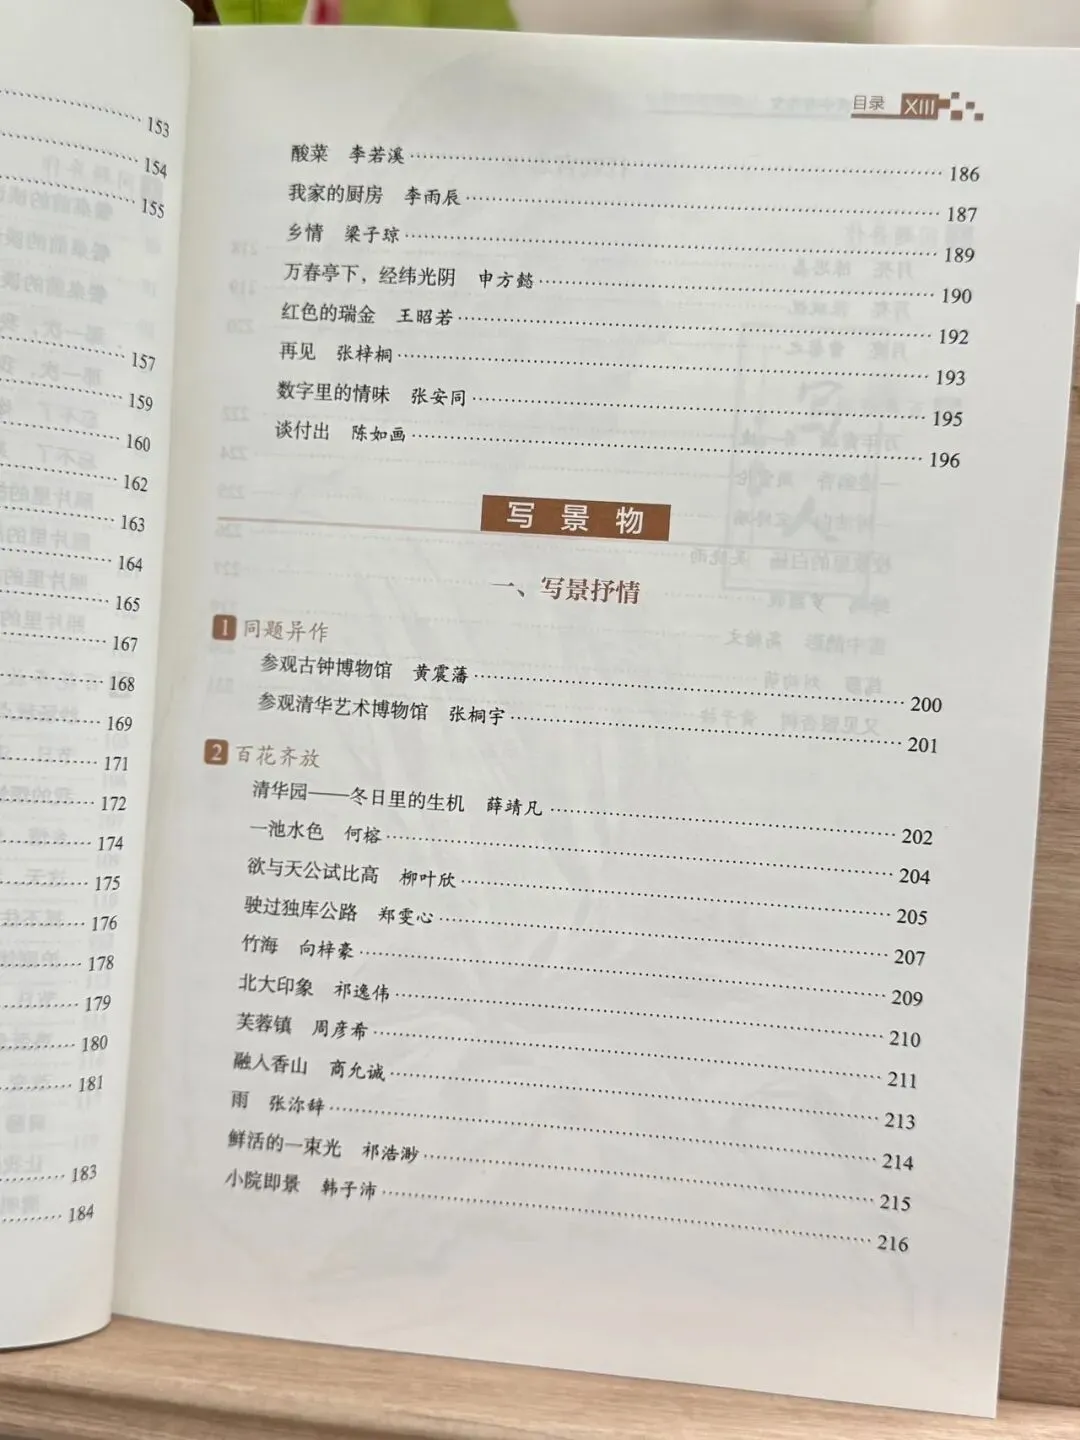 153
154
155
157
159
160
162
163
164
165
167
168
169
171
172
174
175
176
178
179
180
181
183
184
目录 XIII
酸菜 李若溪 186
我家的厨房 李雨辰 187
乡情 梁子琼 189
万春亭下，经纬光阴 申方懿 190
红色的瑞金 王昭若 192
再见 张梓桐 193
数字里的情味 张安同 195
谈付出 陈如画 196
写景物
一、写景抒情
1 同题异作
参观古钟博物馆 黄震藩 200
参观清华艺术博物馆 张桐宇 201
2 百花齐放
清华园——冬日里的生机 薛靖凡 202
一池水色 何榕 204
欲与天公试比高 柳叶欣 205
驶过独库公路 郑雯心 207
竹海 向梓豪 209
北大印象 祁逸伟 210
芙蓉镇 周彦希 211
融入香山 商允诚 213
雨 张沵辞 214
鲜活的一束光 祁浩渺 215
小院即景 韩子沛 216